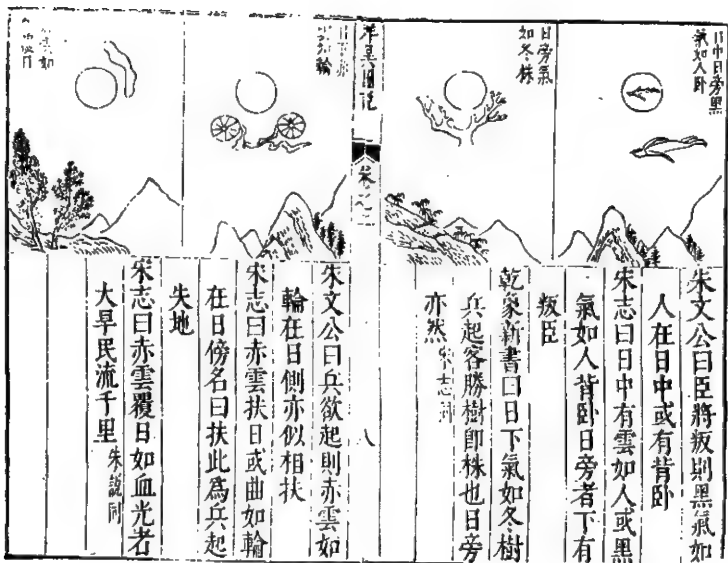 日中日旁黑
氣如人卧
朱文公曰臣將叛則黑氣如
人在日中或有背卧
宋志曰日中有雲如人或黑
氣如人背卧日旁者下有
叛臣
日旁氣
如冬株
乾象新書曰日下氣如冬樹
兵起客勝樹卽株也日旁
亦然宋志同
祥異圖說
卷之二
八
日
輪
朱文公曰兵欲起則赤雲如
輪在日側亦似相扶
宋志曰赤雲扶日或曲如輪
在日傍名曰扶此為兵起
失地
雲如
日
宋志曰赤雲覆日如血光者
大旱民流千里朱說同